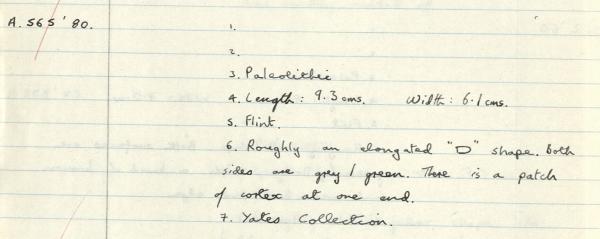 A.565'80.
1.
2.
3. Paleolithic
4. Length: 9.3 cms. Width: 6.1 cms.
5. Flint.
6. Roughly an elongated "D" shape. Both
sides are grey / green. There is a patch
of cortex at one end.
7. Yates Collection.